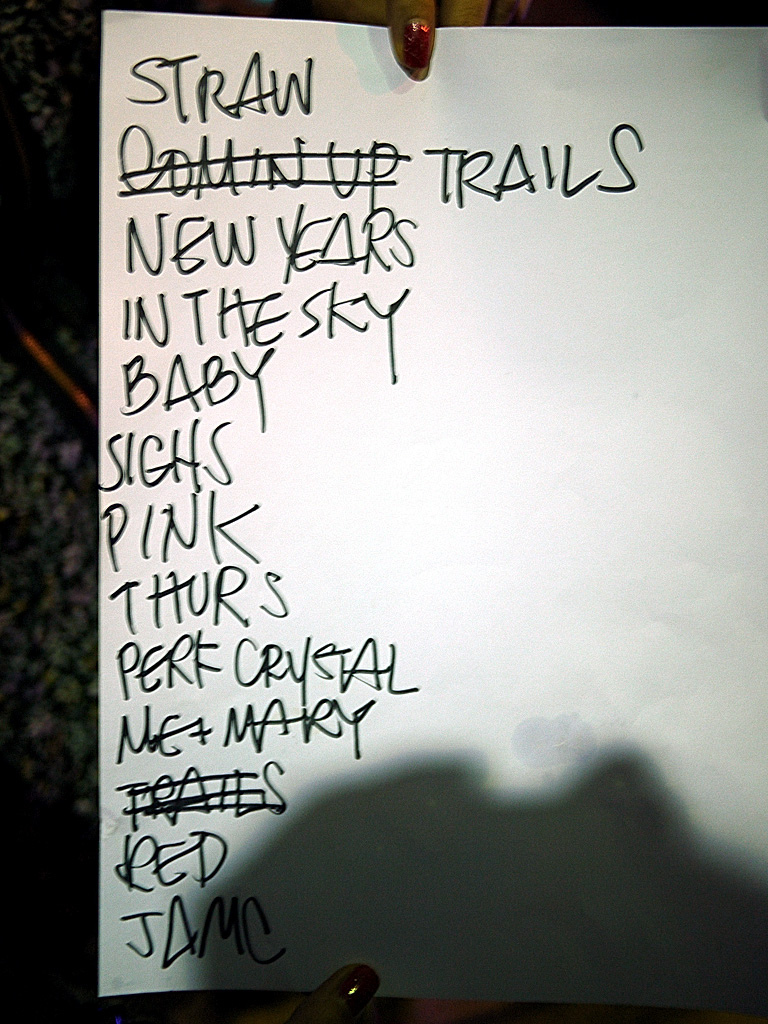 STRAW
COMIN UP TRAILS
NEW YEARS
IN THE SKY
BABY
SIGHS
PINK
THURS
PERF CRYSTAL
ME + MARY
TRAILS
RED
JAMC